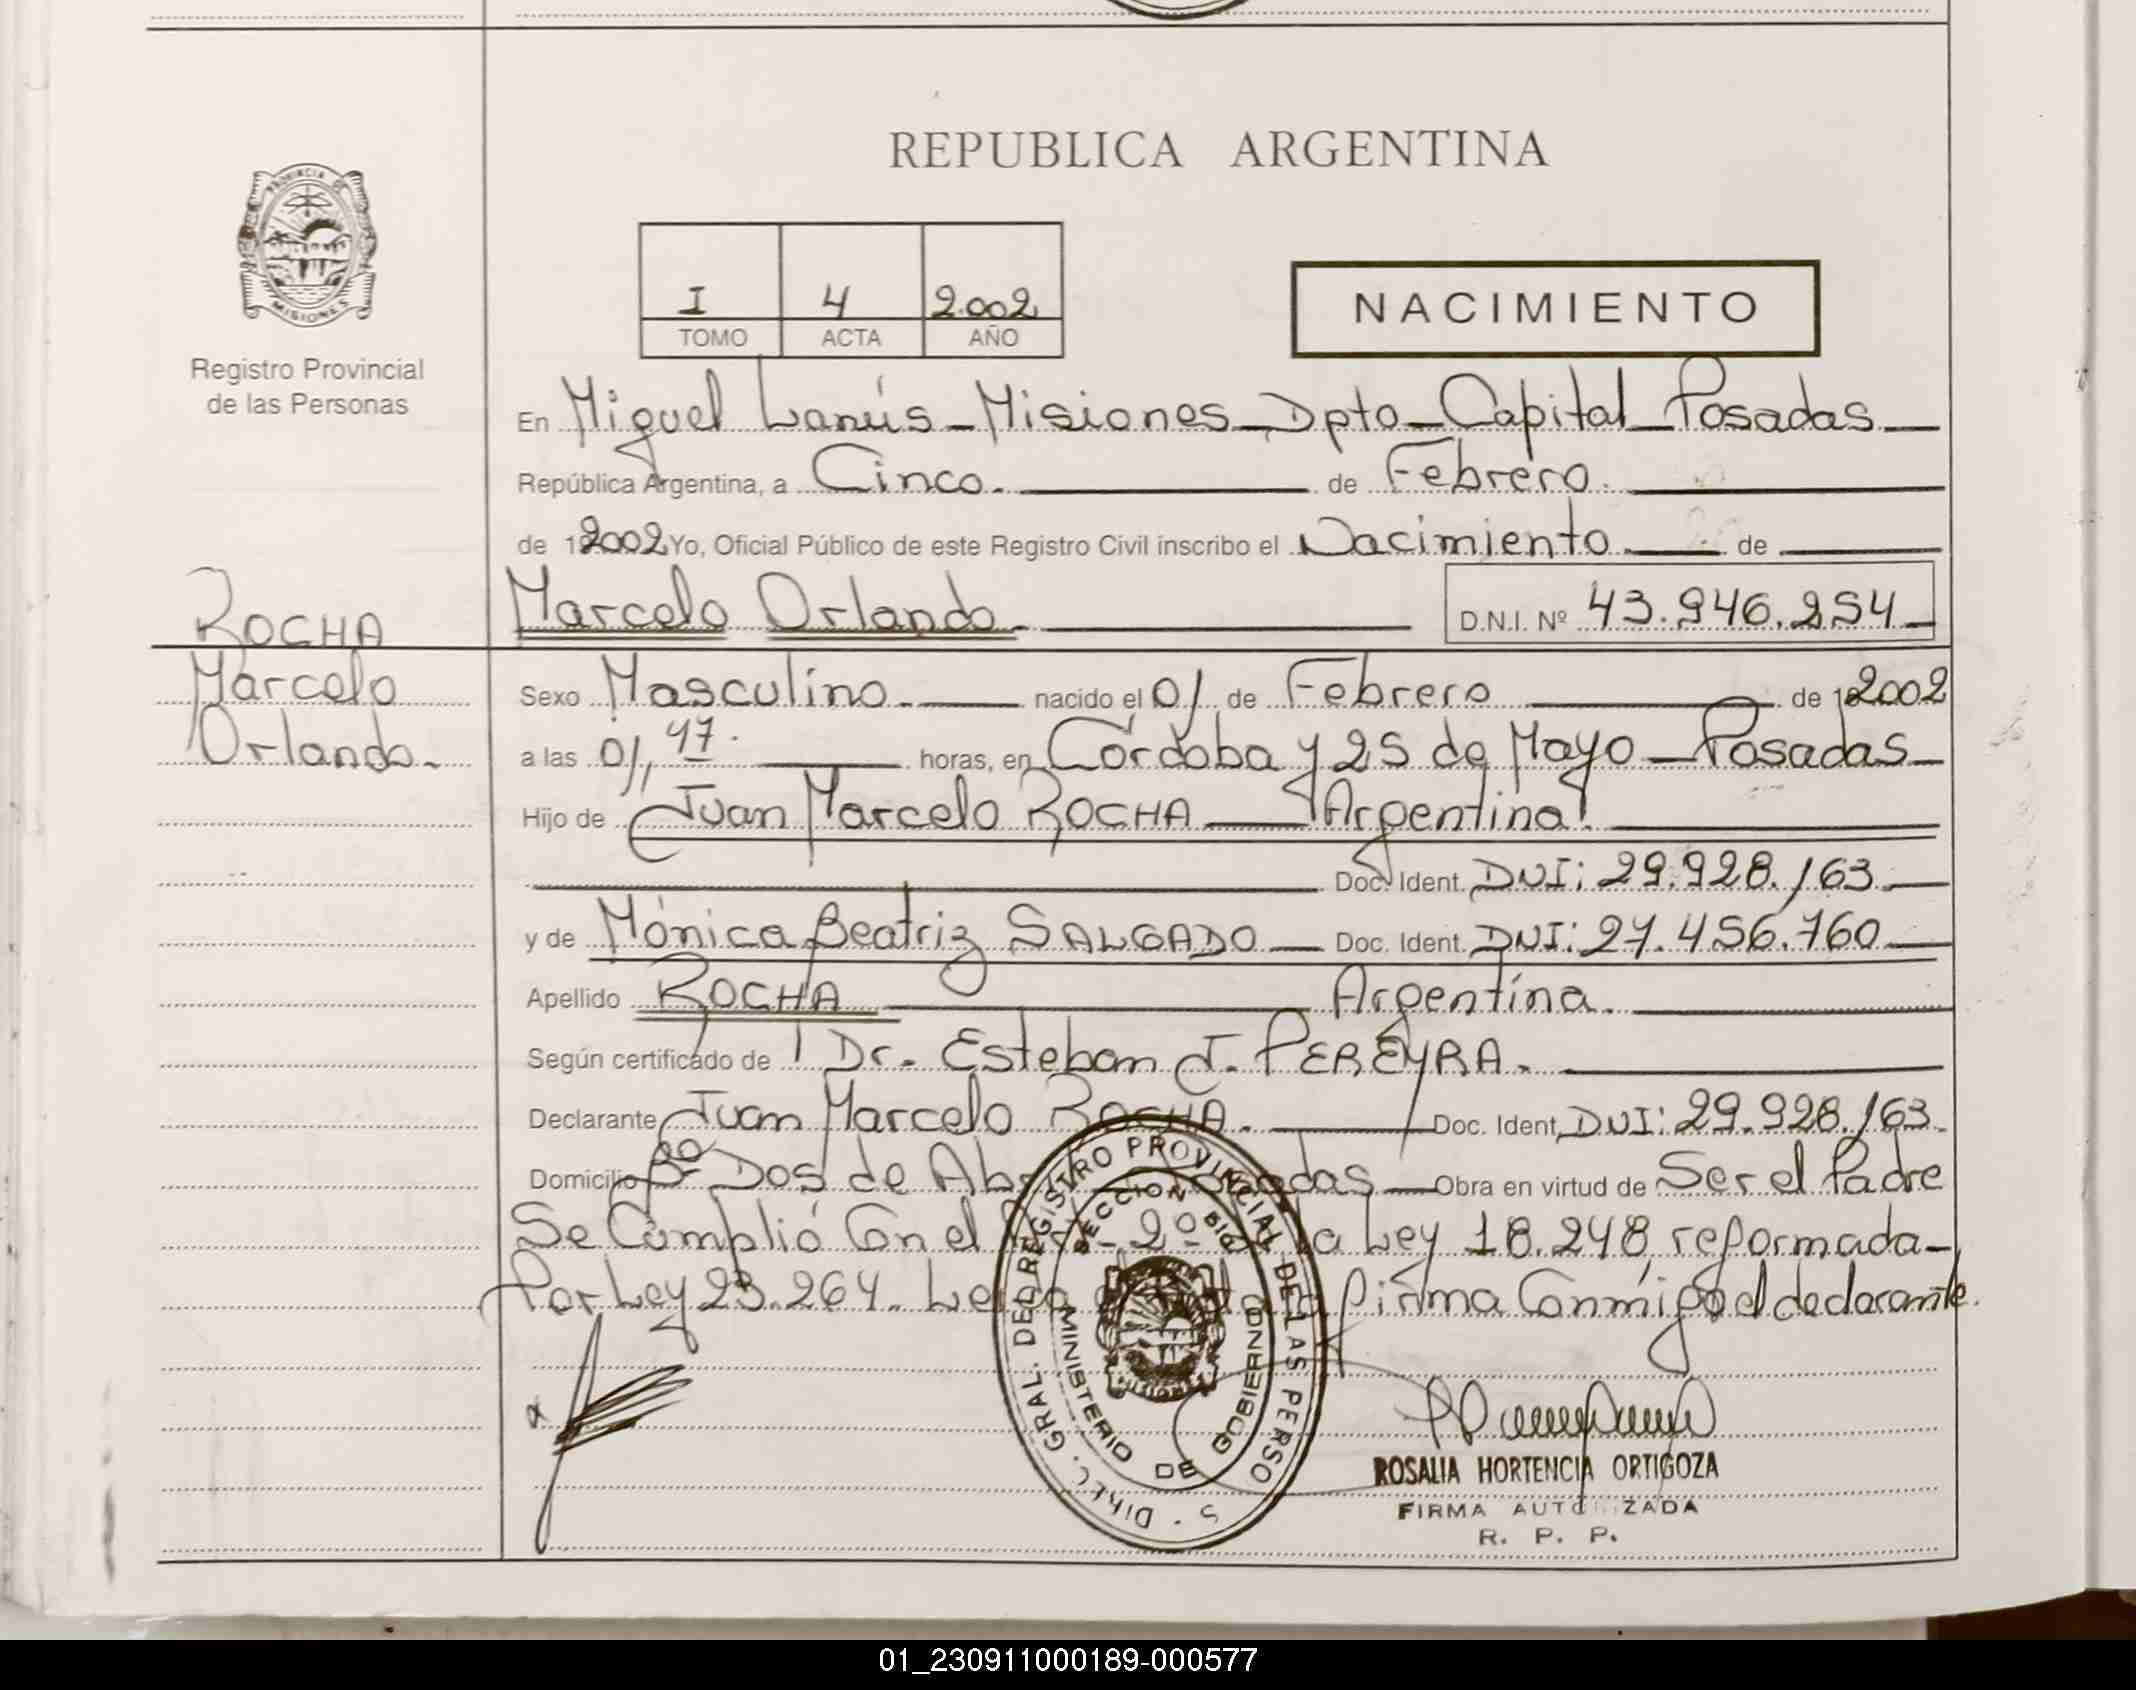 REPUBLICA ARGENTINA
PROVINCIA DE
MISIONES
Registro Provincial
de las Personas
I 4 2.002
TOMO ACTA AÑO
NACIMIENTO
En Miguel Lanús - Misiones - Dpto - Capital - Posadas -
República Argentina, a Cinco. de Febrero.
de 2002 Yo, Oficial Público de este Registro Civil inscribo el Nacimiento de
ROCHA
Marcelo
Orlando.
Marcelo Orlando. D.N.I. Nº 43.946.254
Sexo Masculino. nacido el 01 de Febrero de 2002
a las 01,47. horas, en Córdoba y 25 de Mayo - Posadas -
Hijo de Juan Marcelo ROCHA Argentina.
Doc. Ident. DNI: 29.928.163
y de Mónica Beatriz SALGADO - Doc. Ident. DNI: 27.456.760
Apellido ROCHA Argentina.
Según certificado de Dr. Esteban J. PEREYRA.
Declarante Juan Marcelo ROCHA. Doc. Ident. DNI: 29.928.163
Domicilio Bº Dos de Posadas - Obra en virtud de Ser el Padre
Se Cumplió Con el 2º La Ley 18.248 reformada -
Por Ley 23.264. firma Conmigo el declarante.
DIREC. GRAL. DEL REGISTRO PROVINCIAL DE LAS PERSONAS
MINISTERIO DE GOBIERNO
ROSALIA HORTENCIA ORTIGOZA
FIRMA AUTORIZADA
R. P. P.
01_230911000189-000577